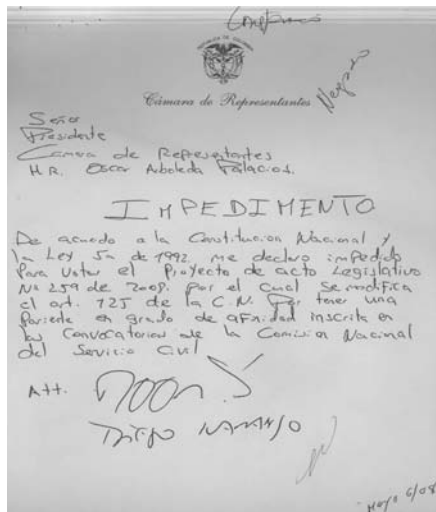 Negado
Cámara de Representantes
Señor
Presidente
Camara de Representantes
H.R. Oscar Arboleda Palacios.
IMPEDIMENTO
De acuerdo a la Constitucion Nacional y
la Ley 5a de 1992 me declaro impedido
Para votar el Proyecto de acto Legislativo
Nº 259 de 2008. Por el cual se modifica
el art. 125 de la C.N. Por tener una
Pariente en grado de afinidad inscrita en
las Convocatorias de la Comision Nacional
del Servicio Civil
Att.
DIEGO NARANJO
Mayo 6/08